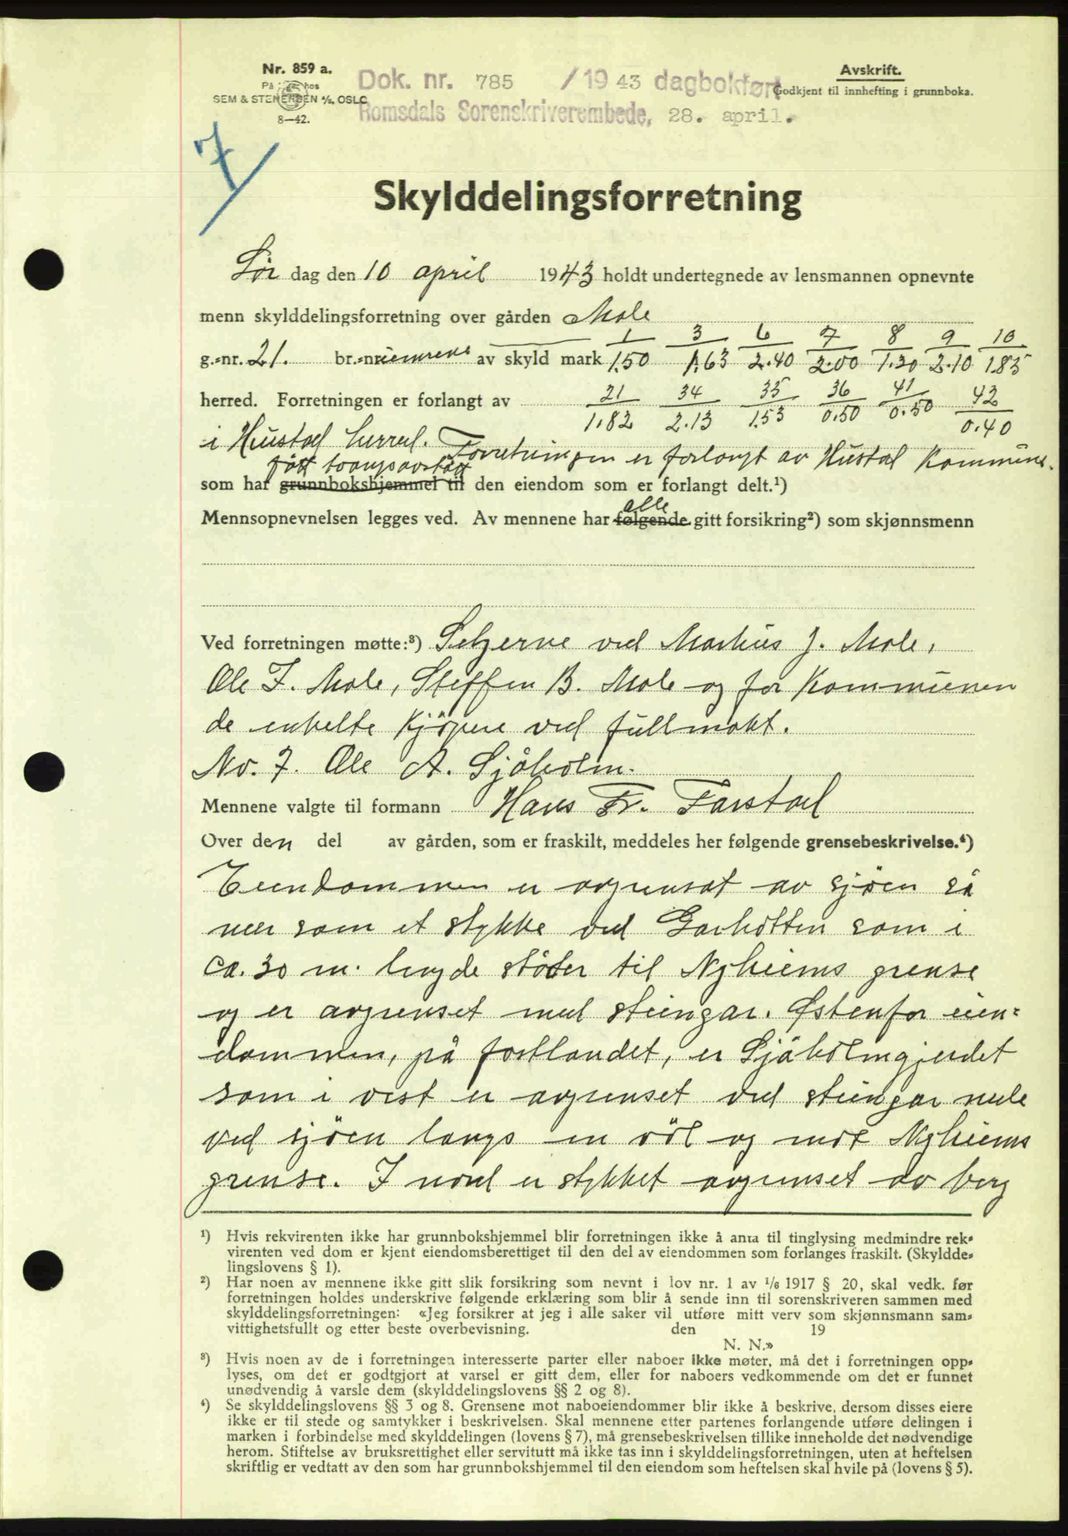 Nr. 859 a.
SEM & STENERSEN A/S, OSLO
8—42.
Dok. nr. 785 / 19 43 dagbokført
Romsdals Sorenskriverembede, 28. april.
Avskrift.
Godkjent til innhefting i grunnboka.
7
Skylddelingsforretning
Lør dag den 10 april 1943 holdt undertegnede av lensmannen opnevnte
menn skylddelingsforretning over gården Male
1 3 6 7 8 9 10
g.-nr. 21. br.-nr. av skyld mark 1.50 1.63 2.40 2.00 1.20 2.10 1.85
21 34 35 36 41 42
herred. Forretningen er forlangt av 1.82 2.13 1.53 0.50 0.50 0.40
i Hustad herred. Forretningen er forlangt av Hustad Kommune.
fått
som har grunnbokshjemmel til den eiendom som er forlangt delt.¹)
alle
Mennsopnevnelsen legges ved. Av mennene har følgende gitt forsikring²) som skjønnsmenn
Ved forretningen møtte:³) Selgerne ved Markus J. Male,
Ole I. Male, Steffen B. Male og for Kommunen
de enkelte Kjøpere ved fullmakt.
No. 7. Ole A. Sjåholm.
Mennene valgte til formann Hans Fr. Farstad
Over den del av gården, som er fraskilt, meddeles her følgende grensebeskrivelse.⁴)
Eiendommen er avgrenset av sjøen så
nær som et stykke ved som i
ca. 30 m. lengde støter til Nyheims grense
og er avgrenset med steingar. Østenfor eien=
dommen, på fastlandet, er Sjåholmgjerdet
som i vest er avgrenset ved steingar nede
ved sjøen langs en og mot Nyheims
grense. I nord er stykket avgrenset av berg
¹) Hvis rekvirenten ikke har grunnbokshjemmel blir forretningen ikke å anta til tinglysing medmindre rek-
virenten ved dom er kjent eiendomsberettiget til den del av eiendommen som forlanges fraskilt. (Skyldde-
lingslovens § 1).
²) Har noen av mennene ikke gitt slik forsikring som nevnt i lov nr. 1 av 1/6 1917 § 20, skal vedk. før
forretningen holdes underskrive følgende erklæring som blir å sende inn til sorenskriveren sammen med
skylddelingsforretningen: «Jeg forsikrer at jeg i alle saker vil utføre mitt verv som skjønnsmann sam-
vittighetsfullt og etter beste overbevisning. den 19
N. N.»
³) Hvis noen av de i forretningen interesserte parter eller naboer ikke møter, må det i forretningen opp-
lyses, om det er godtgjort at varsel er gitt dem, eller for naboers vedkommende om det er funnet
unødvendig å varsle dem (skylddelingslovens §§ 2 og 8).
⁴) Se skylddelingslovens §§ 3 og 8. Grensene mot naboeiendommer blir ikke å beskrive, dersom disses eiere
ikke er til stede og samtykker i beskrivelsen. Skal mennene etter partenes forlangende utføre delingen i
marken i forbindelse med skylddelingen (lovens § 7), må grensebeskrivelsen tillike inneholde det nødvendige
herom. Stiftelse av bruksrettighet eller servitutt må ikke tas inn i skylddelingsforretningen, uten at heftelsen
skriftlig er vedtatt av den som har grunnbokshjemmel til den eiendom som heftelsen skal hvile på (lovens § 5).